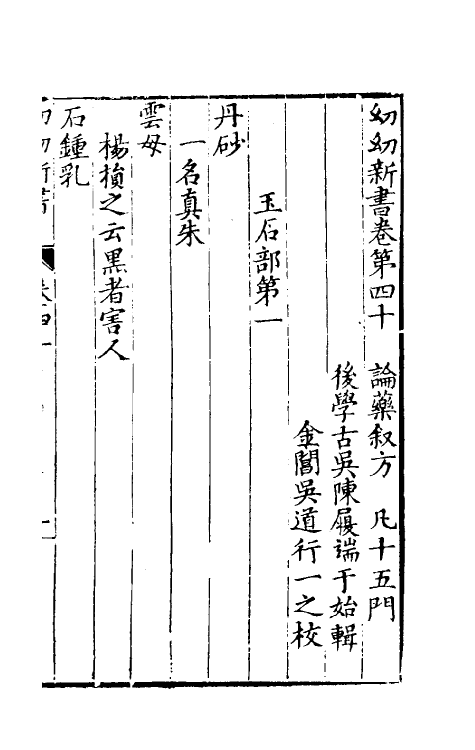 幼幼新書卷第四十　論藥叙方　凡十五門
後學古吳陳履端于始輯
金閶吳道行一之校
玉石部第一
丹砂
一名真朱
雲母
楊損之云黒者害人
石鍾乳
幼幼新書